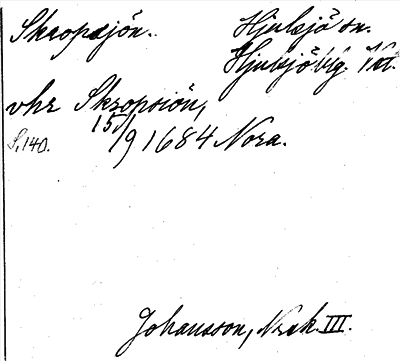 Skropsjön.
Hjulsjö sn.
Hjulsjöbg. Vtl.
vhr Skropsiön,
15/9 1684 Nora.
S. 140.
Johansson, Nrak. III.